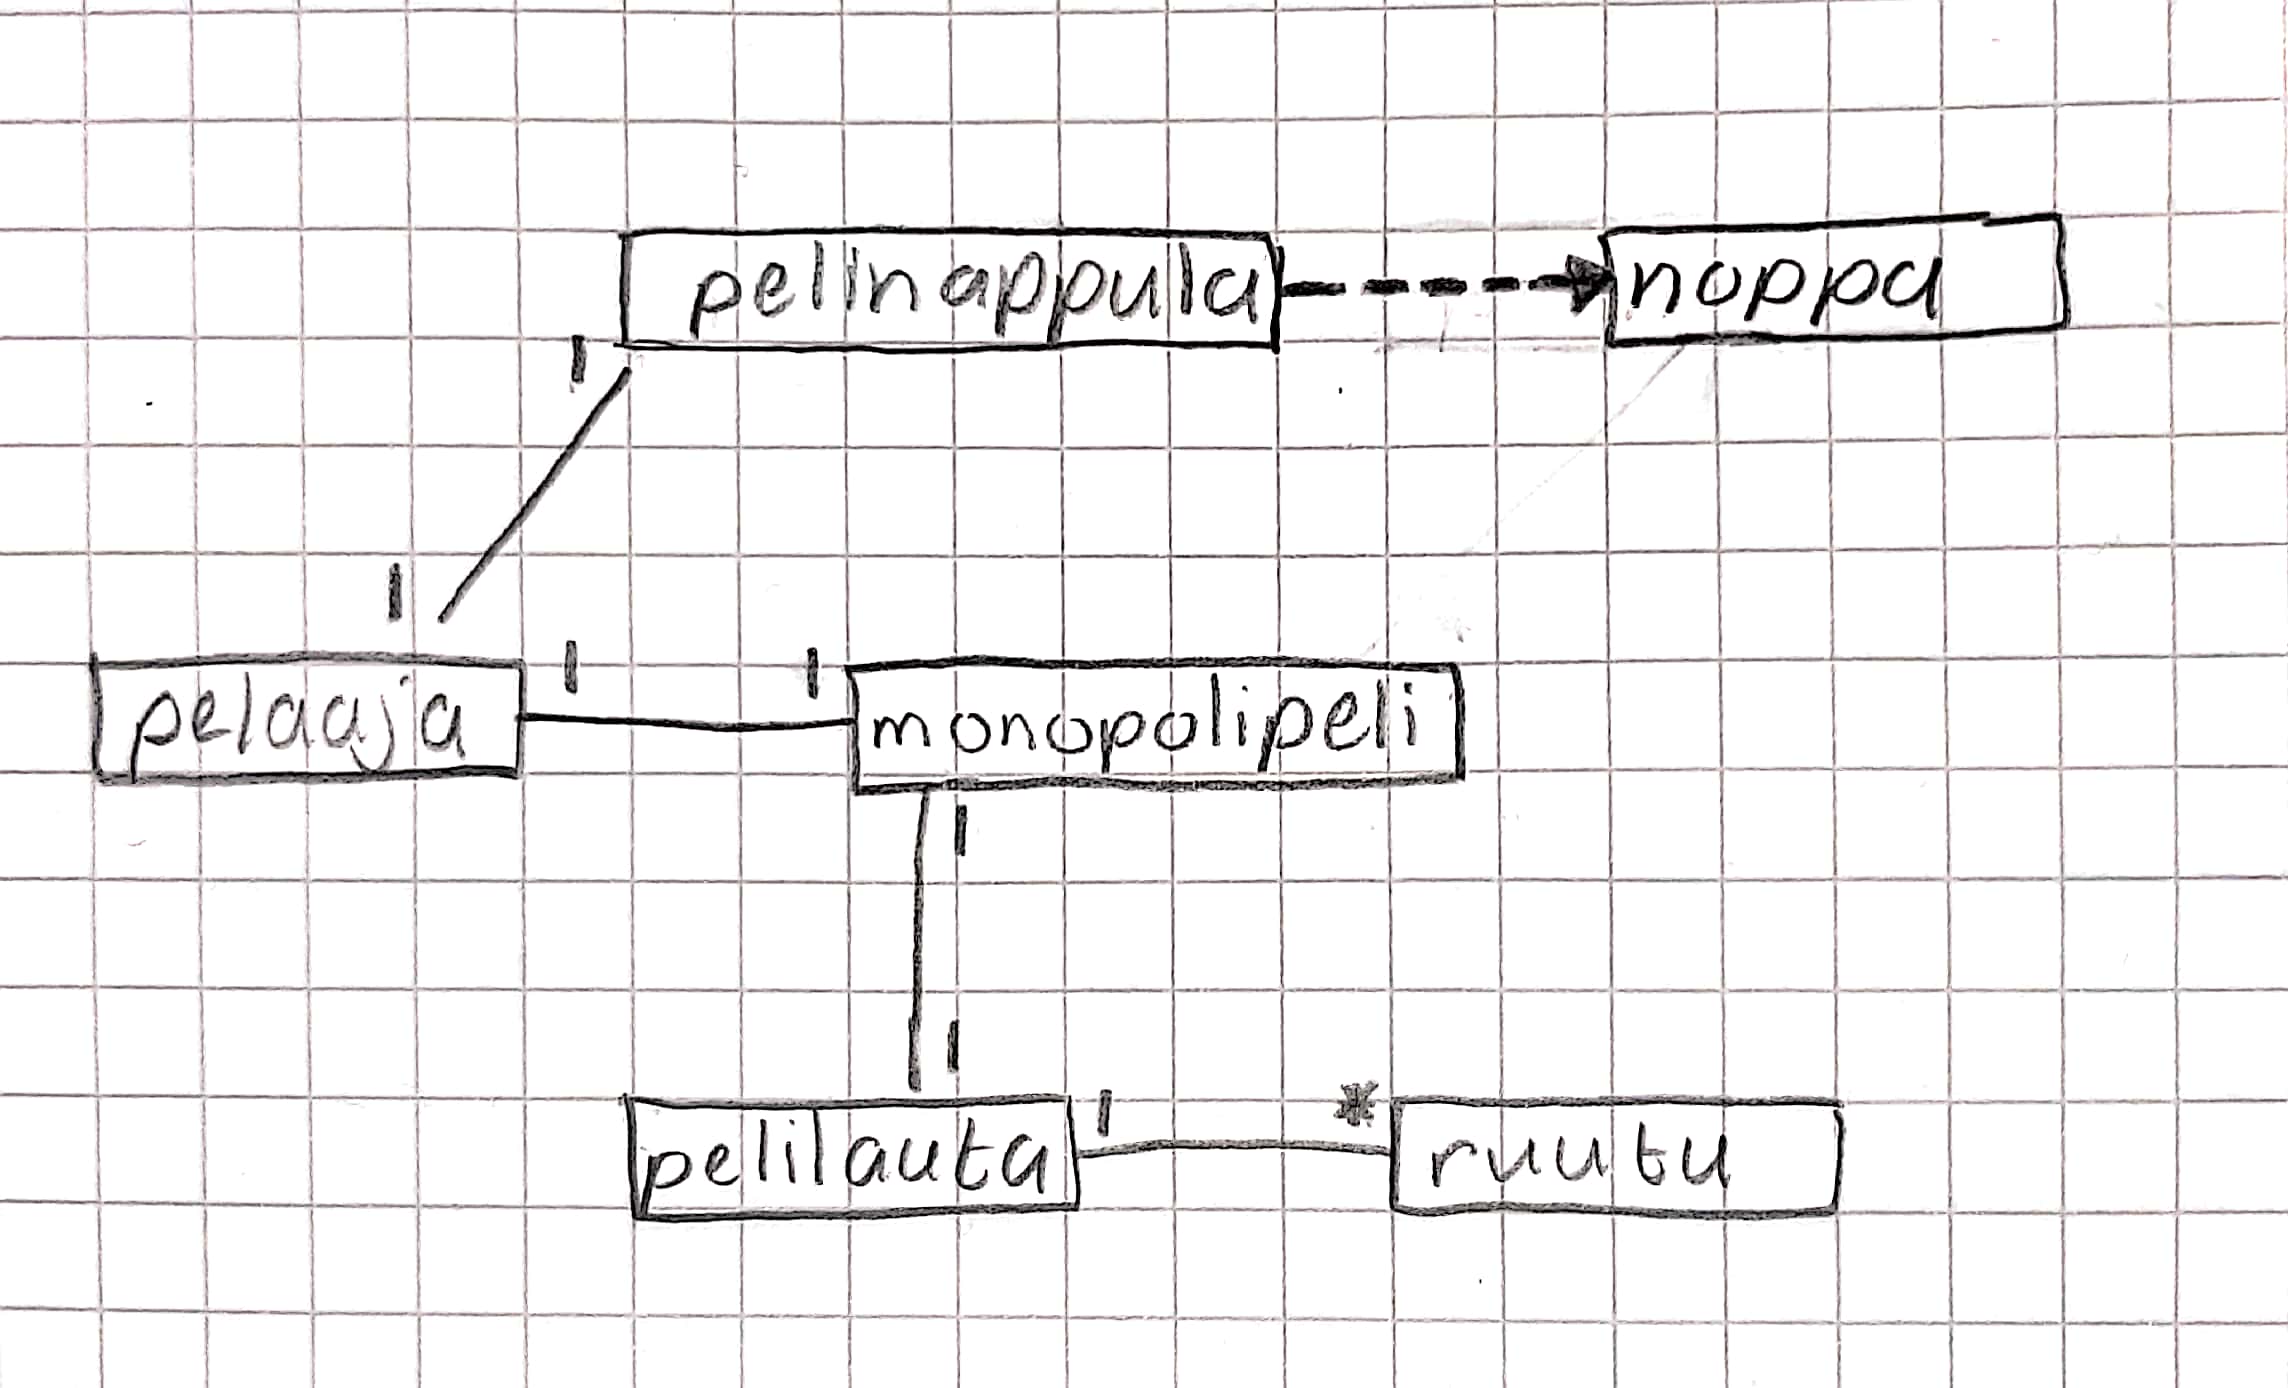 pelinappula noppa
1
1
1 1
pelaaja monopolipeli
1
1
1 *
pelilauta ruutu